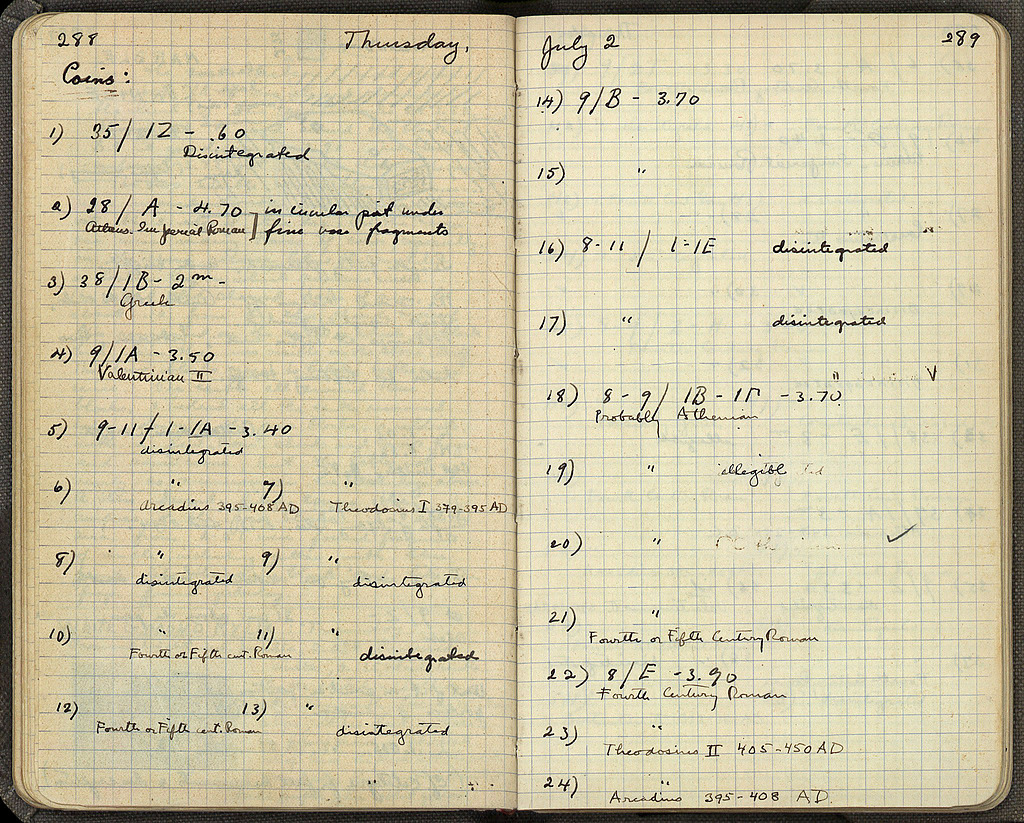 288 Thursday,
Coins:
1) 35/1Z - .60
Disintegrated
2) 28/A - 4.70 ] in circular pit under
Athens. Imperial Roman ] fine vase fragments
3) 38/1B - 2m -
Greek
4) 9/1A - 3.50
Valentinian II
5) 9-11/1-1A - 3.40
disintegrated
6) " 7) "
Arcadius 395-408 AD Theodosius I 379-395 AD
8) " 9) "
disintegrated disintegrated
10) " 11) "
Fourth or Fifth cent. Roman disintegrated
12) 13) "
Fourth or Fifth cent. Roman disintegrated
July 2 289
14) 9/B - 3.70
15) "
16) 8-11/1-1E disintegrated
17) " disintegrated
18) 8-9/1B-1Γ - 3.70
Probably Athenian
19) " illegible
20) " ✓
21) "
Fourth or Fifth Century Roman
22) 8/E - 3.90
Fourth Century Roman
23) "
Theodosius II 405-450 AD
24) "
Arcadius 395-408 AD.